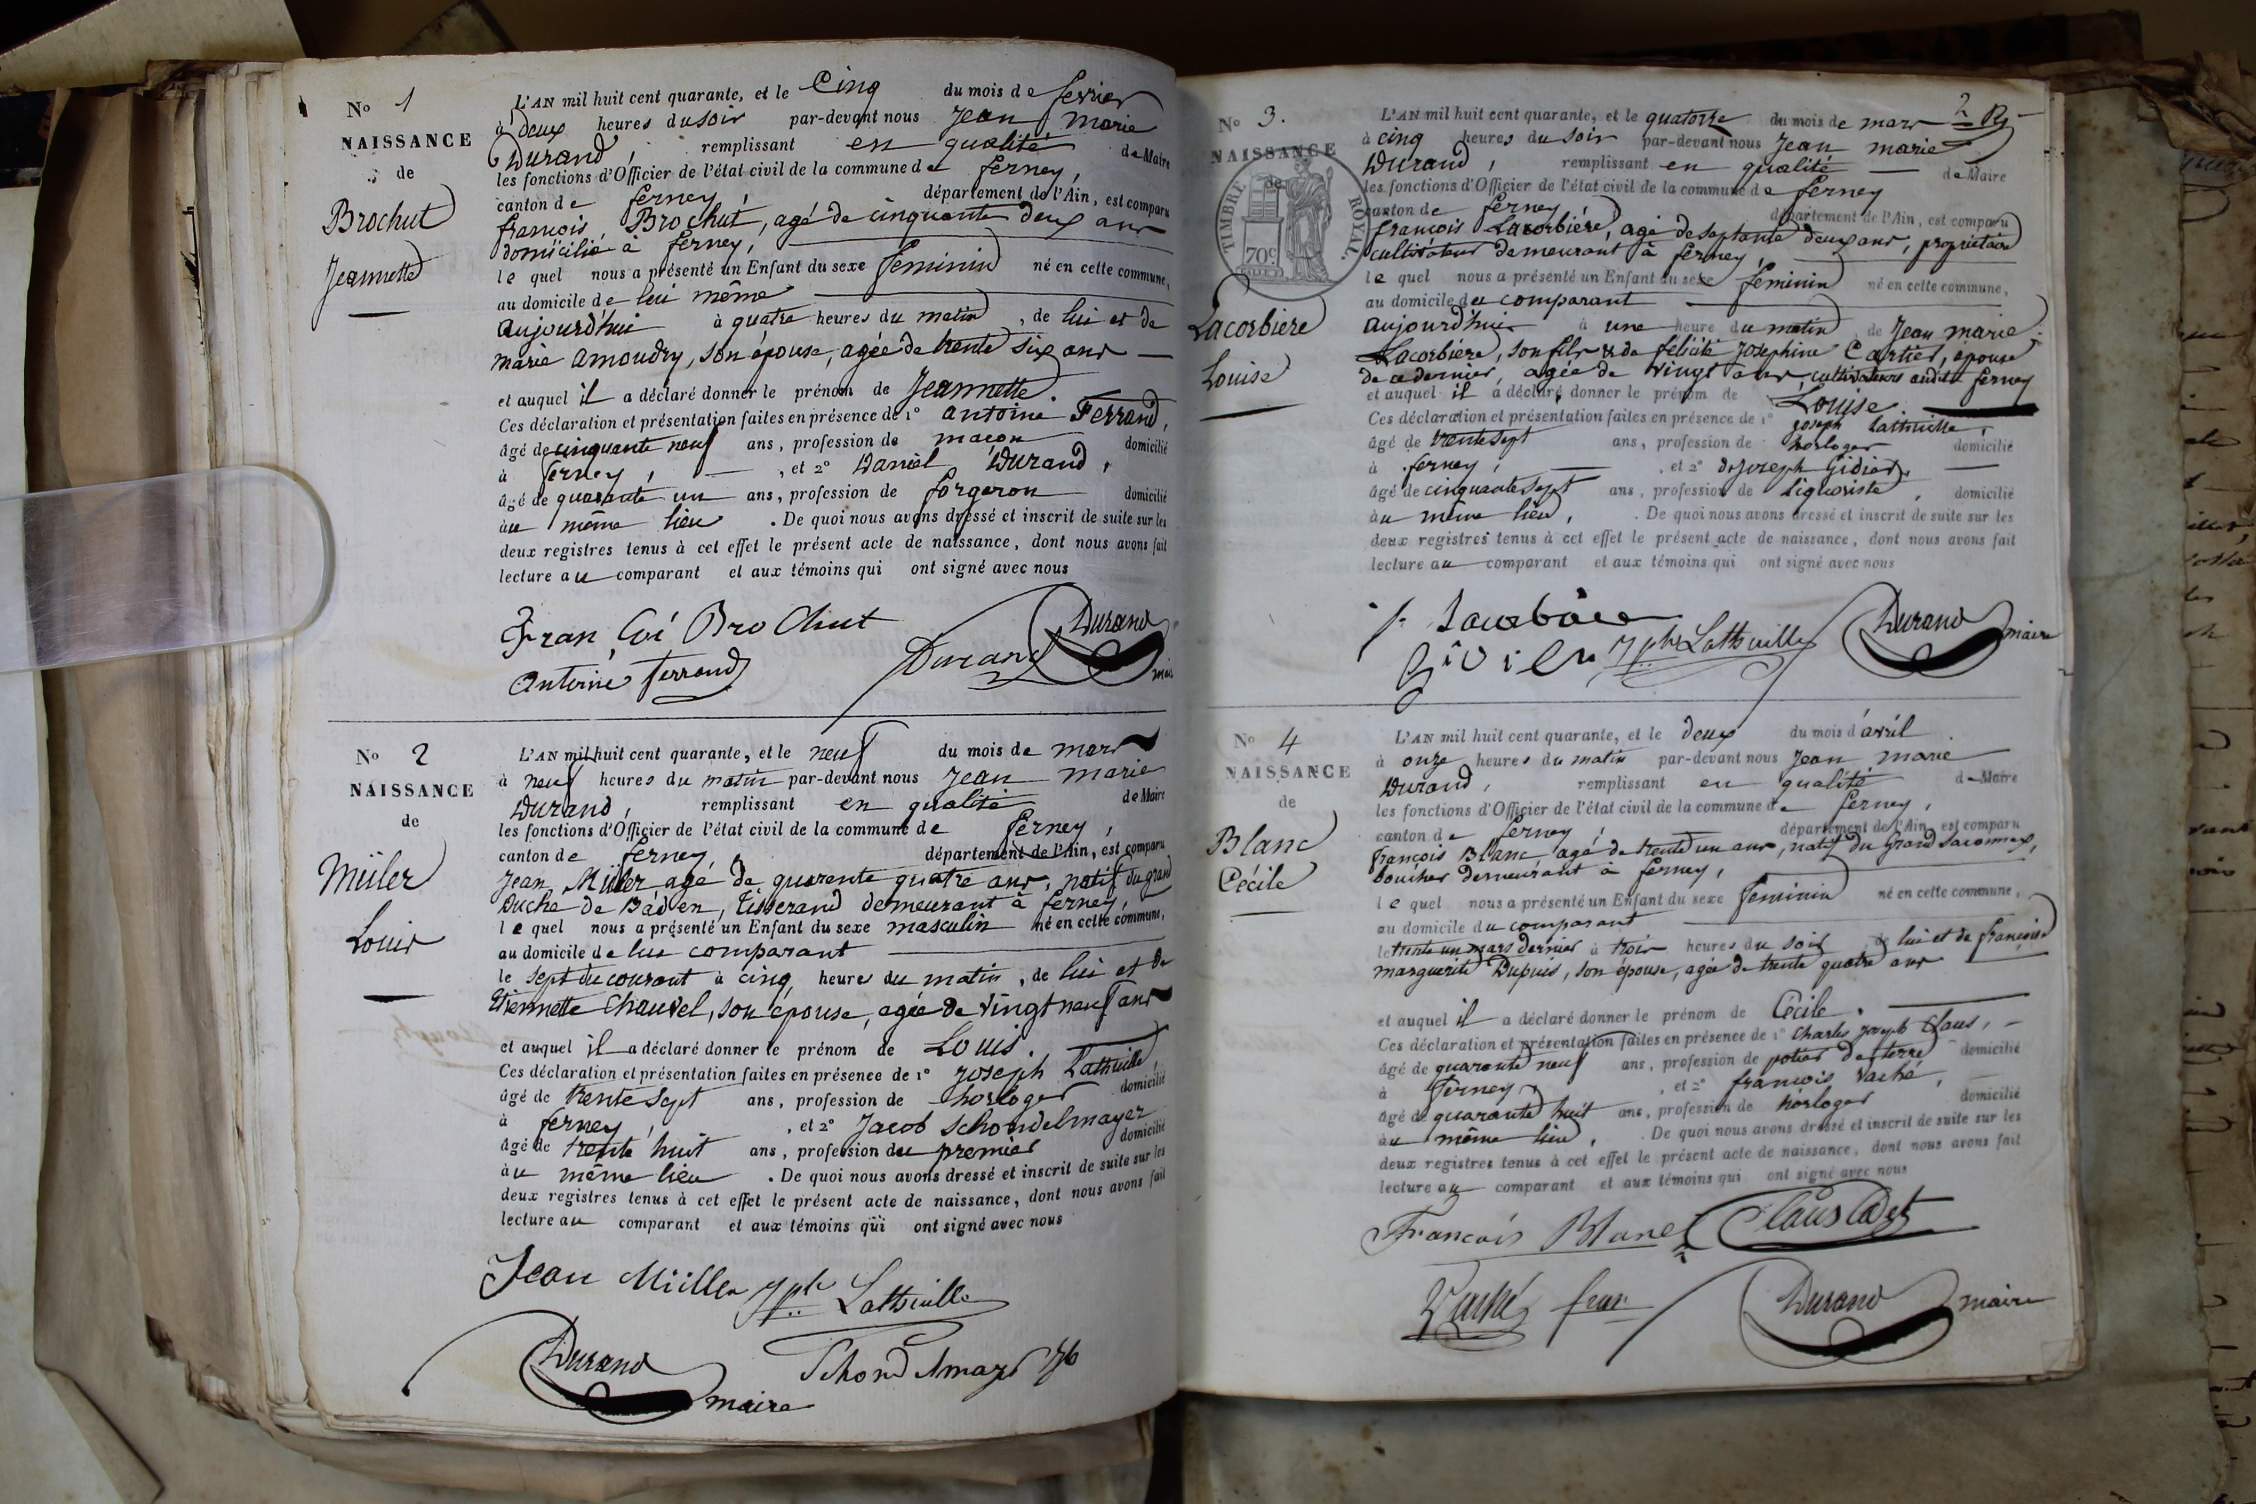 N° 1
NAISSANCE
de
Brochut
Jeannette
L'AN mil huit cent quarante, et le Cinq du mois de fevrier
à deux heures du soir par-devant nous Jean Marie
Durand, remplissant en qualité de Maire
les fonctions d'Officier de l'état civil de la commune de ferney,
canton de ferney, département de l'Ain, est comparu
francois Brochut, agé de cinquante deux ans
domicilié à ferney,
le quel nous a présenté un Enfant du sexe feminin né en cette commune,
au domicile de lui même
aujourd'hui à quatre heures du matin, de lui et de
marie amoudry, son épouse, agée de trente six ans
et auquel il a déclaré donner le prénom de Jeannette.
Ces déclaration et présentation faites en présence de 1° antoine Ferrand,
âgé de cinquante neuf ans, profession de maçon domicilié
à ferney, , et 2° Daniel Durand,
âgé de quarante un ans, profession de forgeron domicilié
au même lieu . De quoi nous avons dressé et inscrit de suite sur les
deux registres tenus à cet effet le présent acte de naissance, dont nous avons fait
lecture au comparant et aux témoins qui ont signé avec nous
Fran Coi Bro Chut
Durand
Durand
maire
Antoine ferrand
N° 2
NAISSANCE
de
Müler
Louis
L'AN mil huit cent quarante, et le neuf du mois de mars
à neuf heures du matin par-devant nous Jean marie
Durand, remplissant en qualité de Maire
les fonctions d'Officier de l'état civil de la commune de ferney,
canton de ferney, département de l'Ain, est comparu
Jean Müler agé de quarente quatre ans, natif du grand
Duché de Baden, tisserand demeurant à ferney,
le quel nous a présenté un Enfant du sexe masculin né en cette commune,
au domicile de lui comparant
le sept du courant à cinq heures du matin, de lui et de
Etiennette Chauvel, son épouse, agée de vingt neuf ans
et auquel il a déclaré donner le prénom de Louis.
Ces déclaration et présentation faites en présence de 1° Joseph Lathuille,
âgé de trente sept ans, profession de horloger domicilié
à ferney, , et 2° Jacob Schondelmayer
âgé de trente huit ans, profession du premier domicilié
au même lieu . De quoi nous avons dressé et inscrit de suite sur les
deux registres tenus à cet effet le présent acte de naissance, dont nous avons fait
lecture au comparant et aux témoins qui ont signé avec nous
Jean Müller Jph Lathuille
Durand
maire
N° 3.
NAISSANCE
de
TIMBRE ROYAL.
70c
Lacorbiere
Louise
2
L'AN mil huit cent quarante, et le quatorze du mois de mars
à cinq heures du soir par-devant nous Jean marie
Durand, remplissant en qualité de Maire
les fonctions d'Officier de l'état civil de la commune de ferney
canton de ferney, département de l'Ain, est comparu
françois Lacorbiére, agé de septante deux ans, propriétaire
cultivateur demeurant à ferney,
le quel nous a présenté un Enfant du sexe feminin né en cette commune,
au domicile du comparant
aujourd'hui à une heure du matin, de Jean marie
Lacorbiére, son fils & de félicité Josephine Cartier, épouse
de ce dernier, agée de vingt ans, cultivateurs audit ferney
et auquel il a déclaré donner le prénom de Louise
Ces déclaration et présentation faites en présence de 1° Joseph Lathuille,
âgé de trente sept ans, profession de horloger domicilié
à ferney, , et 2°
âgé de cinquante sept ans, profession de liquoriste, domicilié
au même lieu, . De quoi nous avons dressé et inscrit de suite sur les
deux registres tenus à cet effet le présent acte de naissance, dont nous avons fait
lecture au comparant et aux témoins qui ont signé avec nous
Jph Lathuille
Durand
maire
N° 4
NAISSANCE
de
Blanc
Cécile
L'AN mil huit cent quarante, et le deux du mois d'avril
à onze heures du matin par-devant nous Jean marie
Durand, remplissant en qualité de Maire
les fonctions d'Officier de l'état civil de la commune de ferney,
canton de ferney, département de l'Ain, est comparu
françois Blanc, agé de trente un ans, natif du Grand Saconnex,
boucher demeurant à ferney,
le quel nous a présenté un Enfant du sexe feminin né en cette commune,
au domicile du comparant
le trente un mars dernier à trois heures du soir, de lui et de françoise
marguerite Dupuis, son épouse, agée de trente quatre ans
et auquel il a déclaré donner le prénom de Cécile.
Ces déclaration et présentation faites en présence de 1° Charles Joseph Claus,
âgé de quarante neuf ans, profession de potier de terre domicilié
à ferney, , et 2° francois Vaché,
âgé de quarante huit ans, profession de horloger domicilié
au même lieu, . De quoi nous avons dressé et inscrit de suite sur les
deux registres tenus à cet effet le présent acte de naissance, dont nous avons fait
lecture au comparant et aux témoins qui ont signé avec nous
Francois Blanc Claus Cadet
Vaché fran
Durand
maire